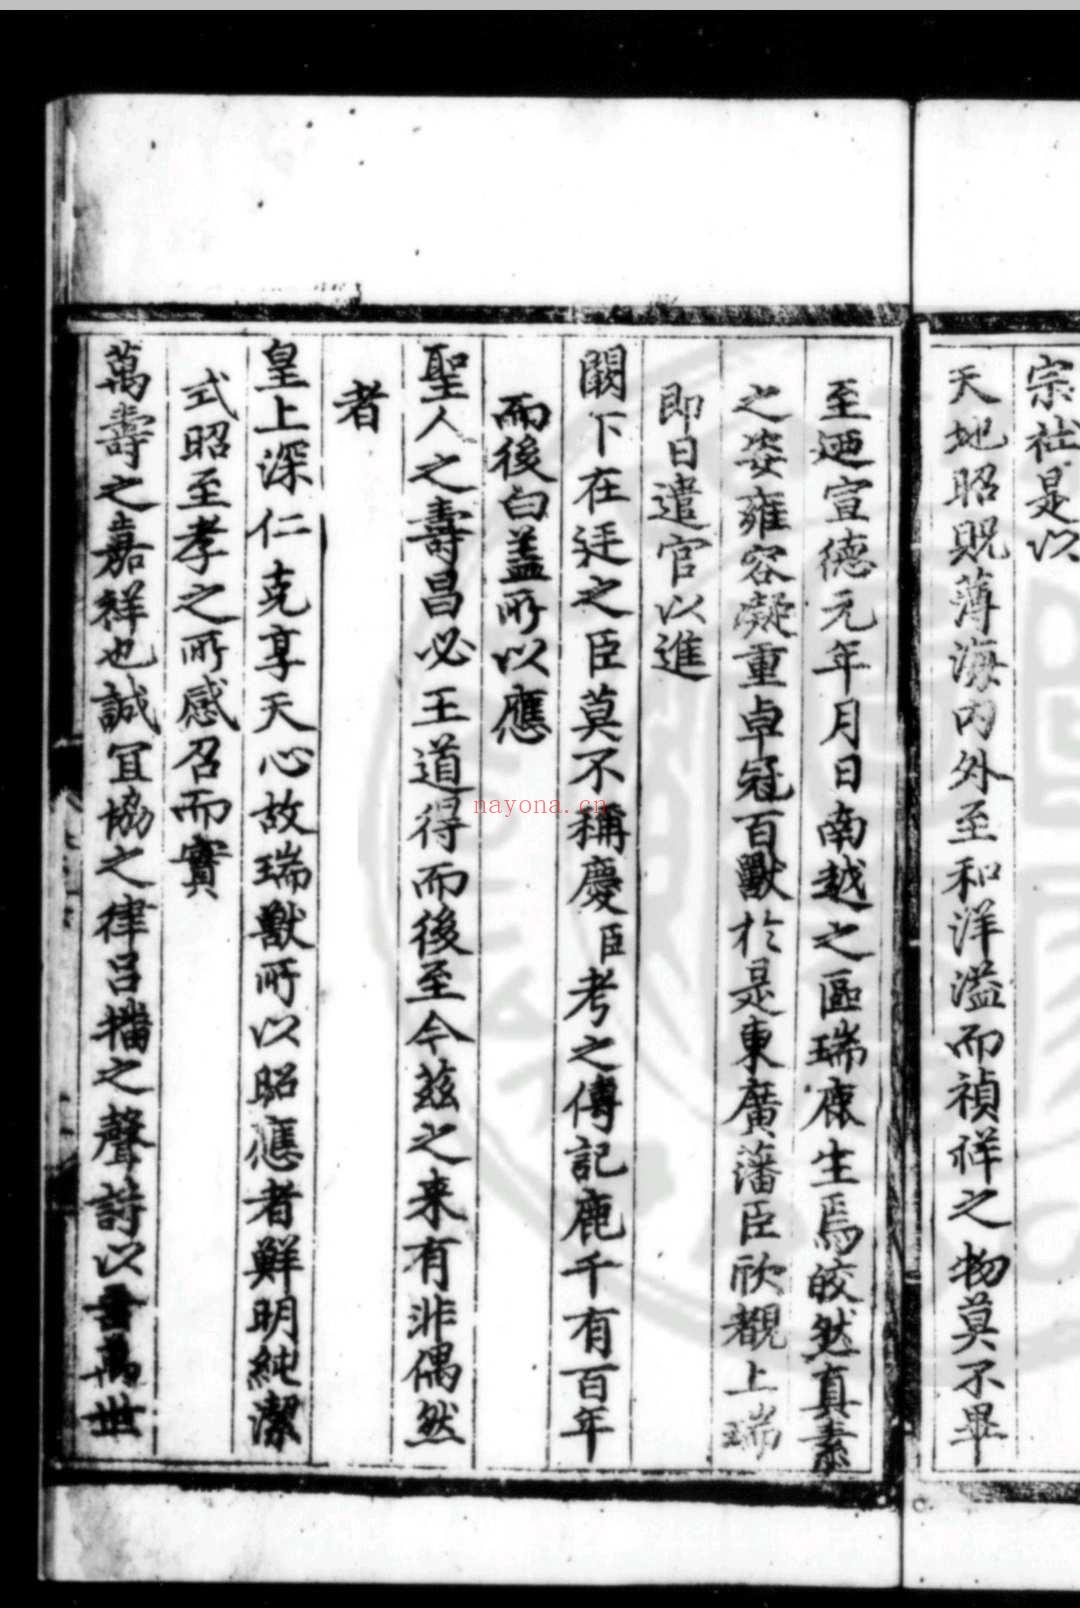 宗社是以
天地昭貺薄海內外至和洋溢而禎祥之物莫不畢
至迺宣德元年月日南越之區瑞鹿生焉皎然真素
之姿雍容凝重卓冠百獸於是東廣藩臣欣覩上瑞
即日遣官以進
闕下在廷之臣莫不稱慶臣考之傳記鹿千有百年
而後白盖所以應
聖人之壽昌必王道得而後至今茲之来有非偶然
者
皇上深仁克享天心故瑞獸所以昭應者鮮明純潔
式昭至孝之所感召而實
萬壽之嘉祥也誠冝協之律呂播之聲詩以書萬世
nayona.cn